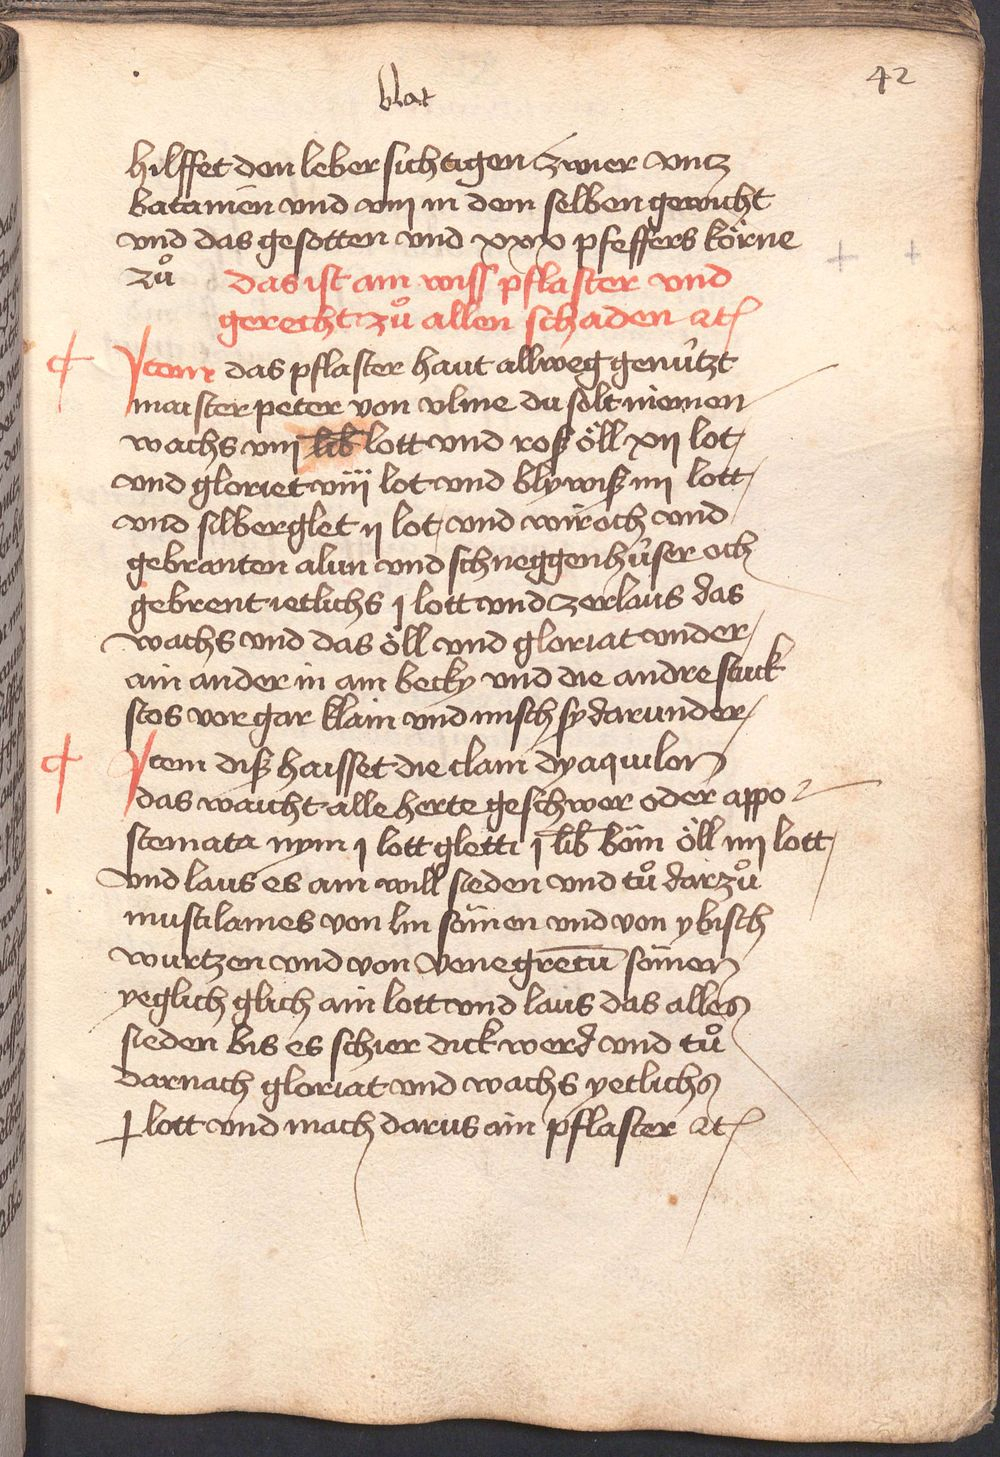 42
blat
hilffet den leber sichtigen zwier vntz
batanien vnd viii in dem selben gewicht
vnd das gesotten vnd xxx pfeffers körne
zů das ist ain wiss pflaster vnd
gerecht zů allen schaden ꝛc
Item das pflaster haut allweg genützt
maister peter von vlme du solt niemen
wachs viii lib lott vnd roß öll xii lot
vnd gloriet viii lot vnd blywiß iiii lott
vnd silberglet ii lot vnd wiroch vnd
gebranten alun vnd schneggenhüser och
gebrent ietlichs j lott vnd zerlaus das
wachs vnd das öll vnd gloriat vnder
ain ander in ain becky vnd die andre stuck
stos vor gar klain vnd misch sy darunder
Item diß haisset die clain dyaquilon
das waicht alle herte geschwer oder appo
stemata nym j lott gletti j lib böm öll iiii lott
vnd laus es ain will sieden vnd tů darzů
mustilaines von lin sömen vnd von ybisch
wurtzen vnd von venegrecū sömen
yeglich glich ain lott vnd laus das alles
sieden bis es schier dick werd vnd tů
darnach gloriat vnd wachs yetlichs
j lott vnd mach darus ain pflaster ꝛc